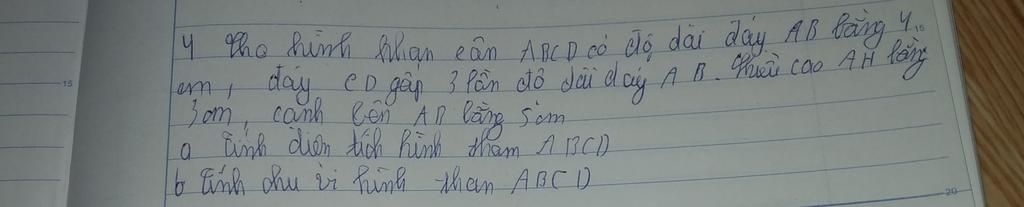 4 Cho hình than cân ABCD có độ dài đáy AB bằng 4
cm, đáy CD gấp 3 lần độ dài đáy AB. Chiều cao AH bằng
3cm, cạnh bên AD bằng 5cm
a Tính diện tích hình tham ABCD
b Tính chu vi hình than ABCD
15
15
20